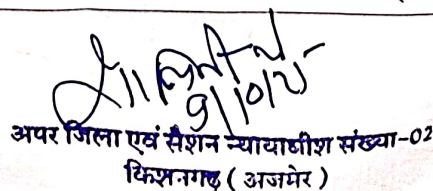 9/10/25
अपर जिला एवं सैशन न्यायाधीश संख्या-02
किशनगढ़ ( अजमेर )